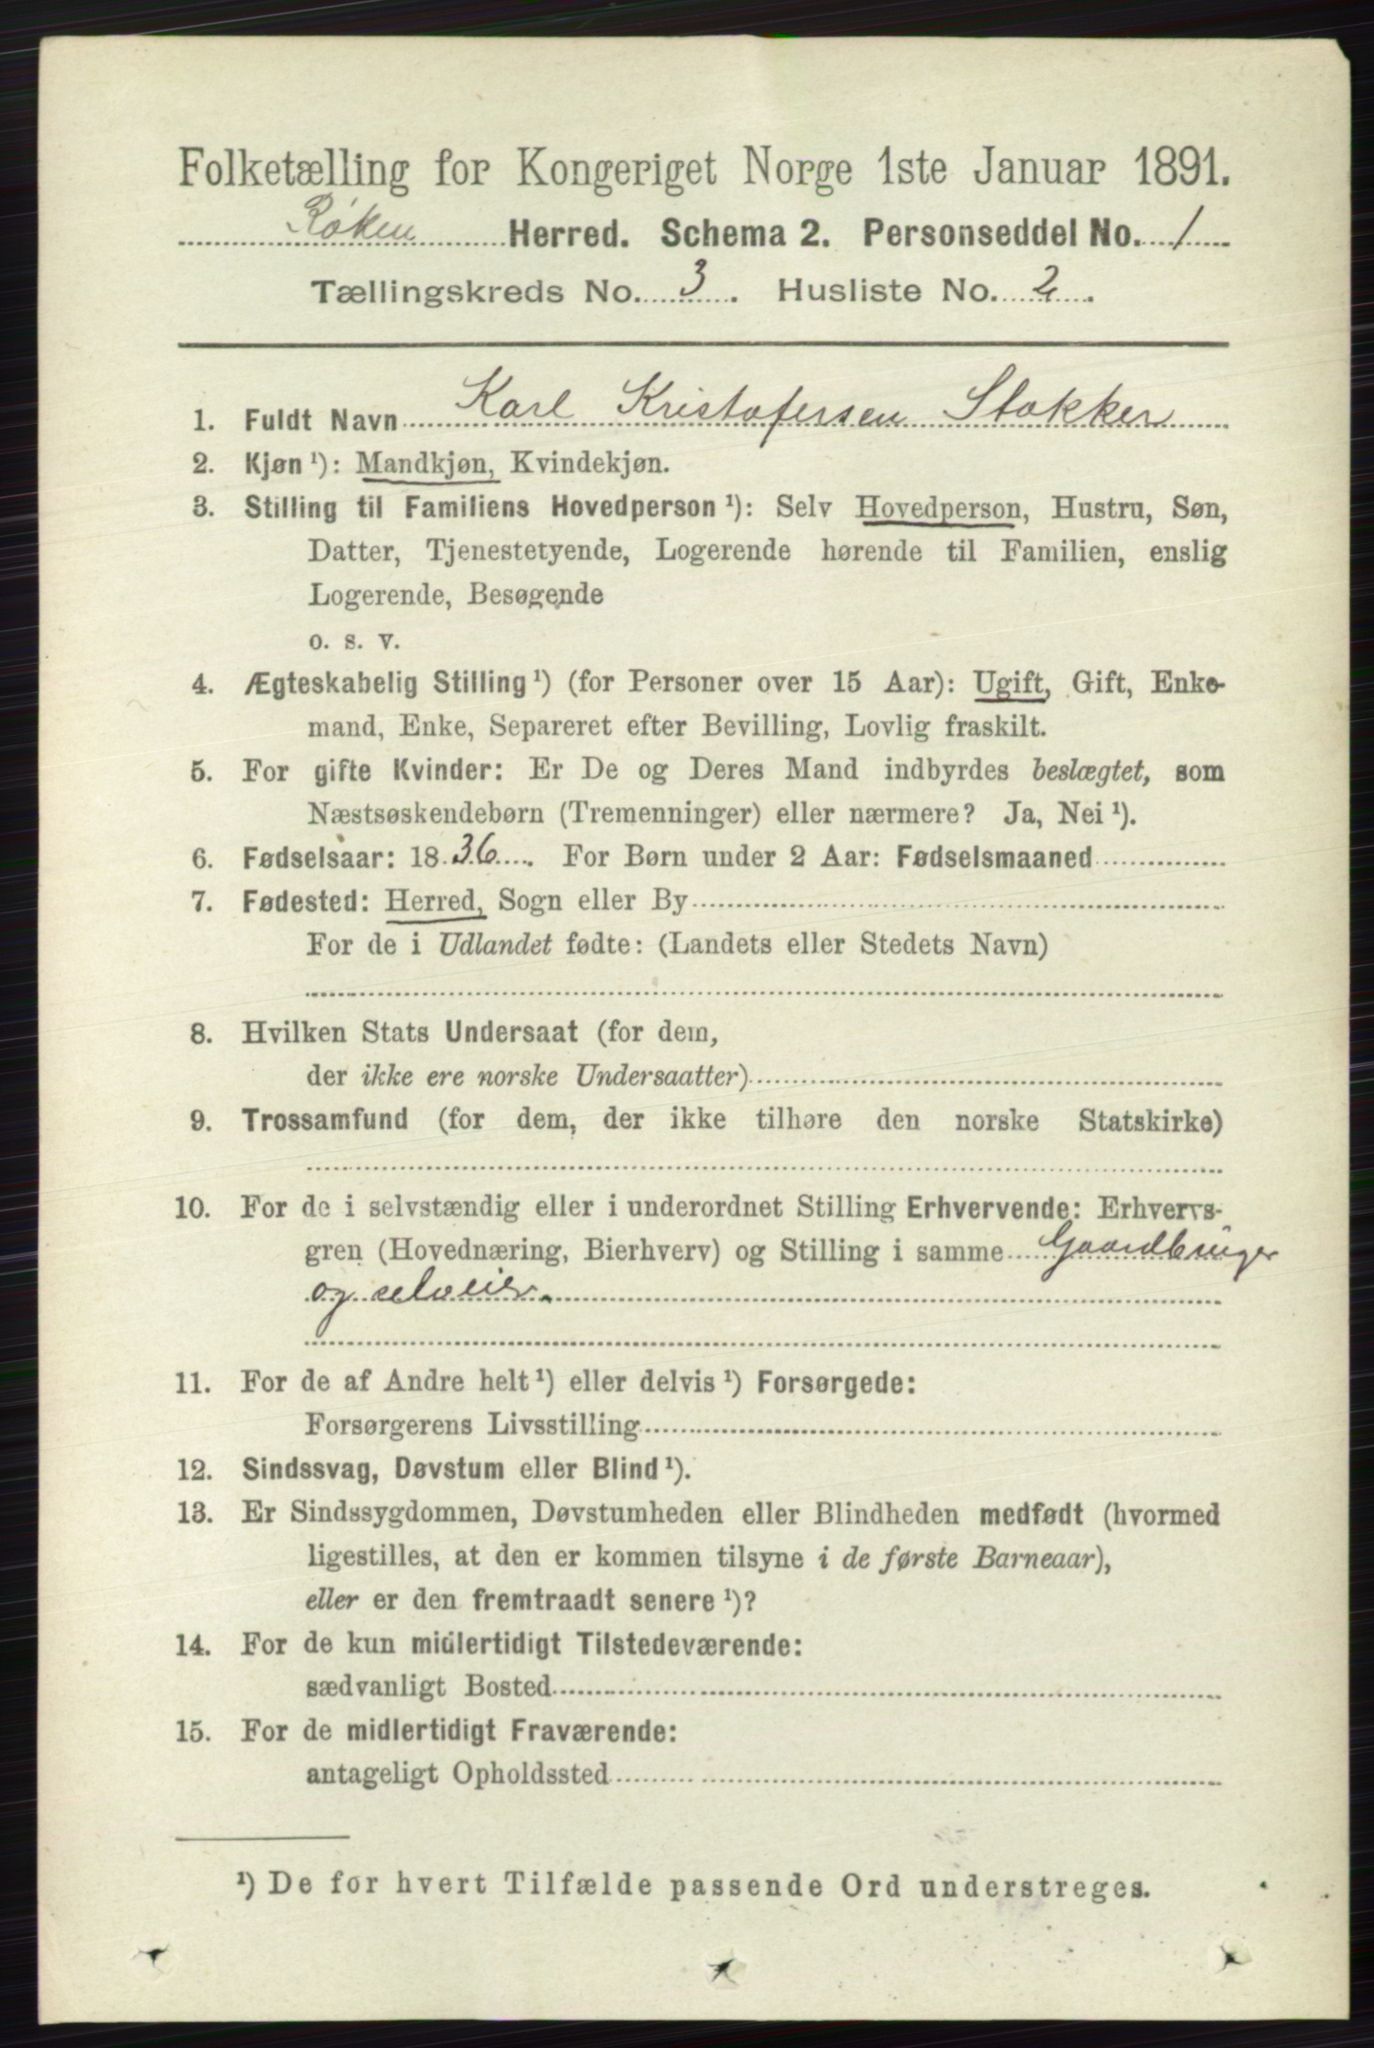 Folketælling for Kongeriget Norge 1ste Januar 1891.
Røken Herred. Schema 2. Personseddel No. 1
Tællingskreds No. 3. Husliste No. 2.
1. Fuldt Navn Karl Kristofersen Stokker
2. Kjøn ¹): Mandkjøn, Kvindekjøn.
3. Stilling til Familiens Hovedperson ¹): Selv Hovedperson, Hustru, Søn,
Datter, Tjenestetyende, Logerende hørende til Familien, enslig
Logerende, Besøgende
o. s. v.
4. Ægteskabelig Stilling ¹) (for Personer over 15 Aar): Ugift, Gift, Enke-
mand, Enke, Separeret efter Bevilling, Lovlig fraskilt.
5. For gifte Kvinder: Er De og Deres Mand indbyrdes beslægtet, som
Næstsøskendebørn (Tremenninger) eller nærmere? Ja, Nei ¹).
6. Fødselsaar: 1836. For Børn under 2 Aar: Fødselsmaaned
7. Fødested: Herred, Sogn eller By
For de i Udlandet fødte: (Landets eller Stedets Navn)
8. Hvilken Stats Undersaat (for dem,
der ikke ere norske Undersaatter)
9. Trossamfund (for dem, der ikke tilhøre den norske Statskirke)
10. For de i selvstændig eller i underordnet Stilling Erhvervende: Erhvervs-
gren (Hovednæring, Bierhverv) og Stilling i samme Gaardbruger
og selveier.
11. For de af Andre helt ¹) eller delvis ¹) Forsørgede:
Forsørgerens Livsstilling
12. Sindssvag, Døvstum eller Blind ¹).
13. Er Sindssygdommen, Døvstumheden eller Blindheden medfødt (hvormed
ligestilles, at den er kommen tilsyne i de første Barneaar),
eller er den fremtraadt senere ¹)?
14. For de kun midlertidigt Tilstedeværende:
sædvanligt Bosted
15. For de midlertidigt Fraværende:
antageligt Opholdssted
¹) De for hvert Tilfælde passende Ord understreges.